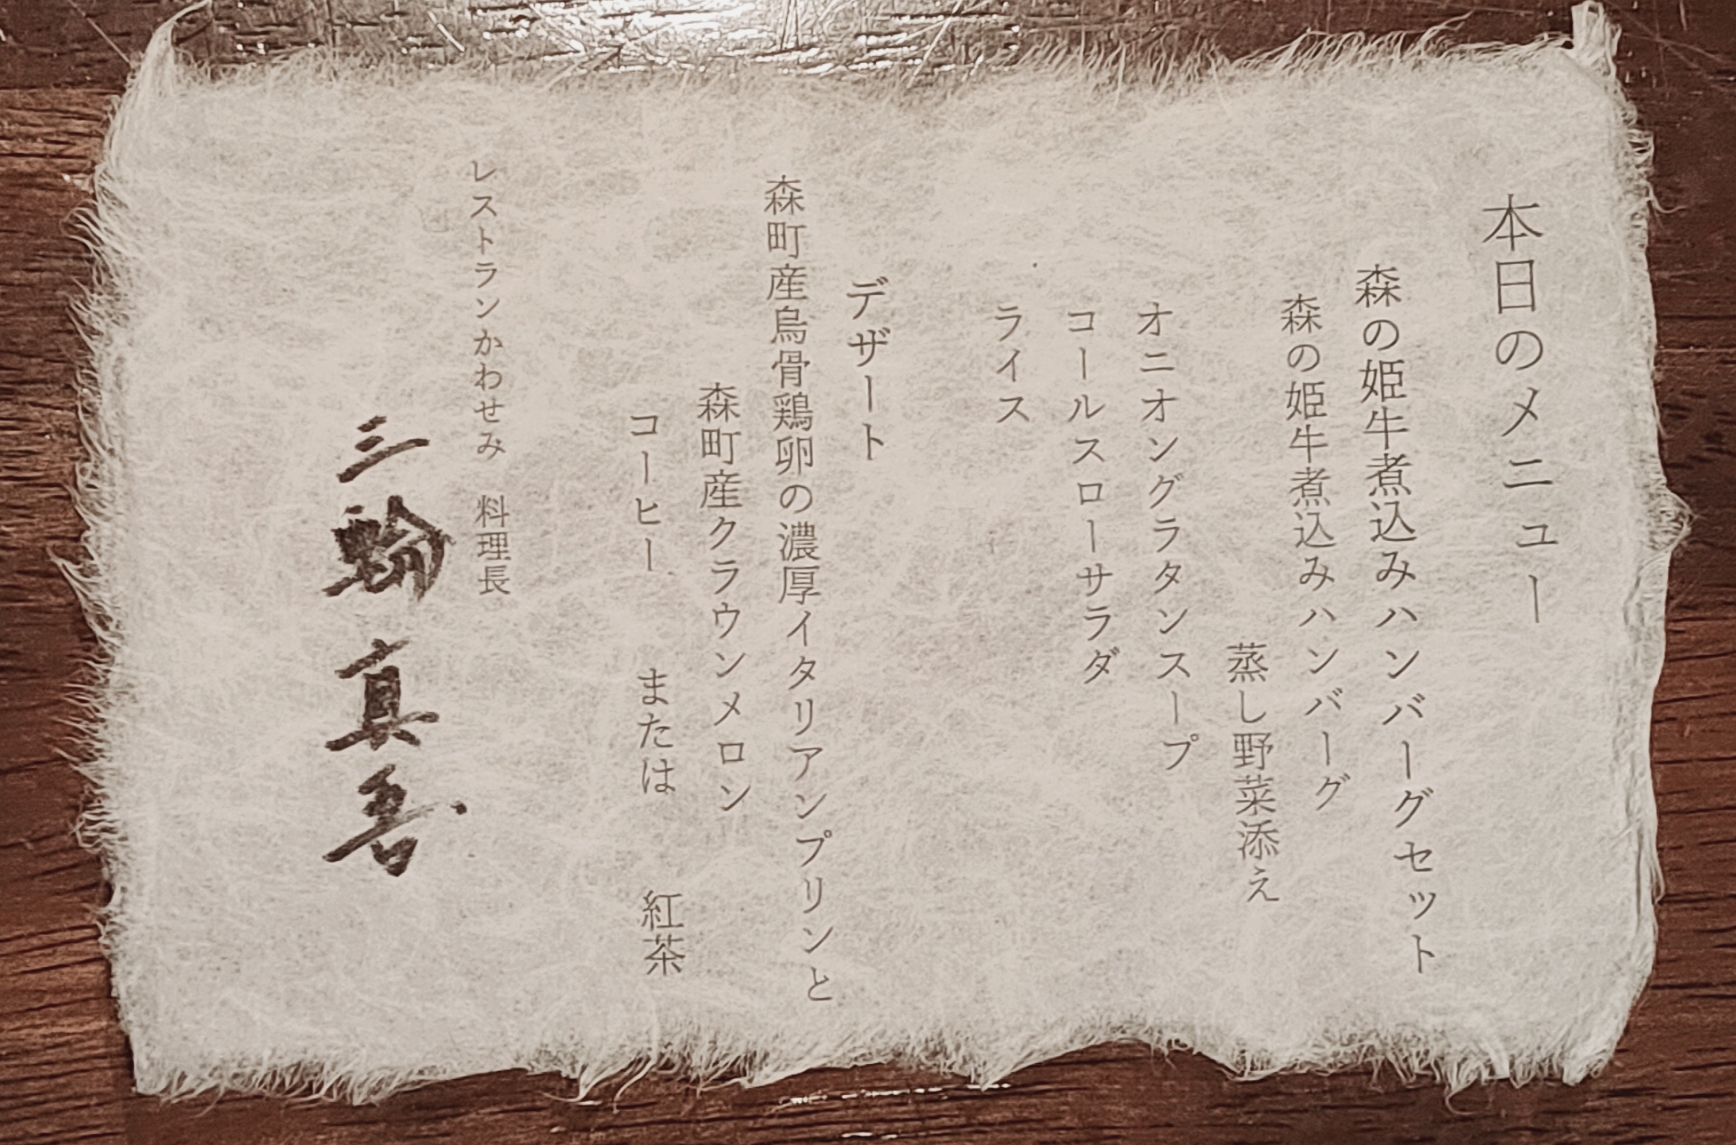 本日のメニュー
森の姫牛煮込みハンバーグセット
森の姫牛煮込みハンバーグ
蒸し野菜添え
オニオングラタンスープ
コールスローサラダ
ライス
デザート
森町産烏骨鶏卵の濃厚イタリアンプリンと
森町産クラウンメロン
コーヒー　または　紅茶
レストランかわせみ　料理長
三輪真吾